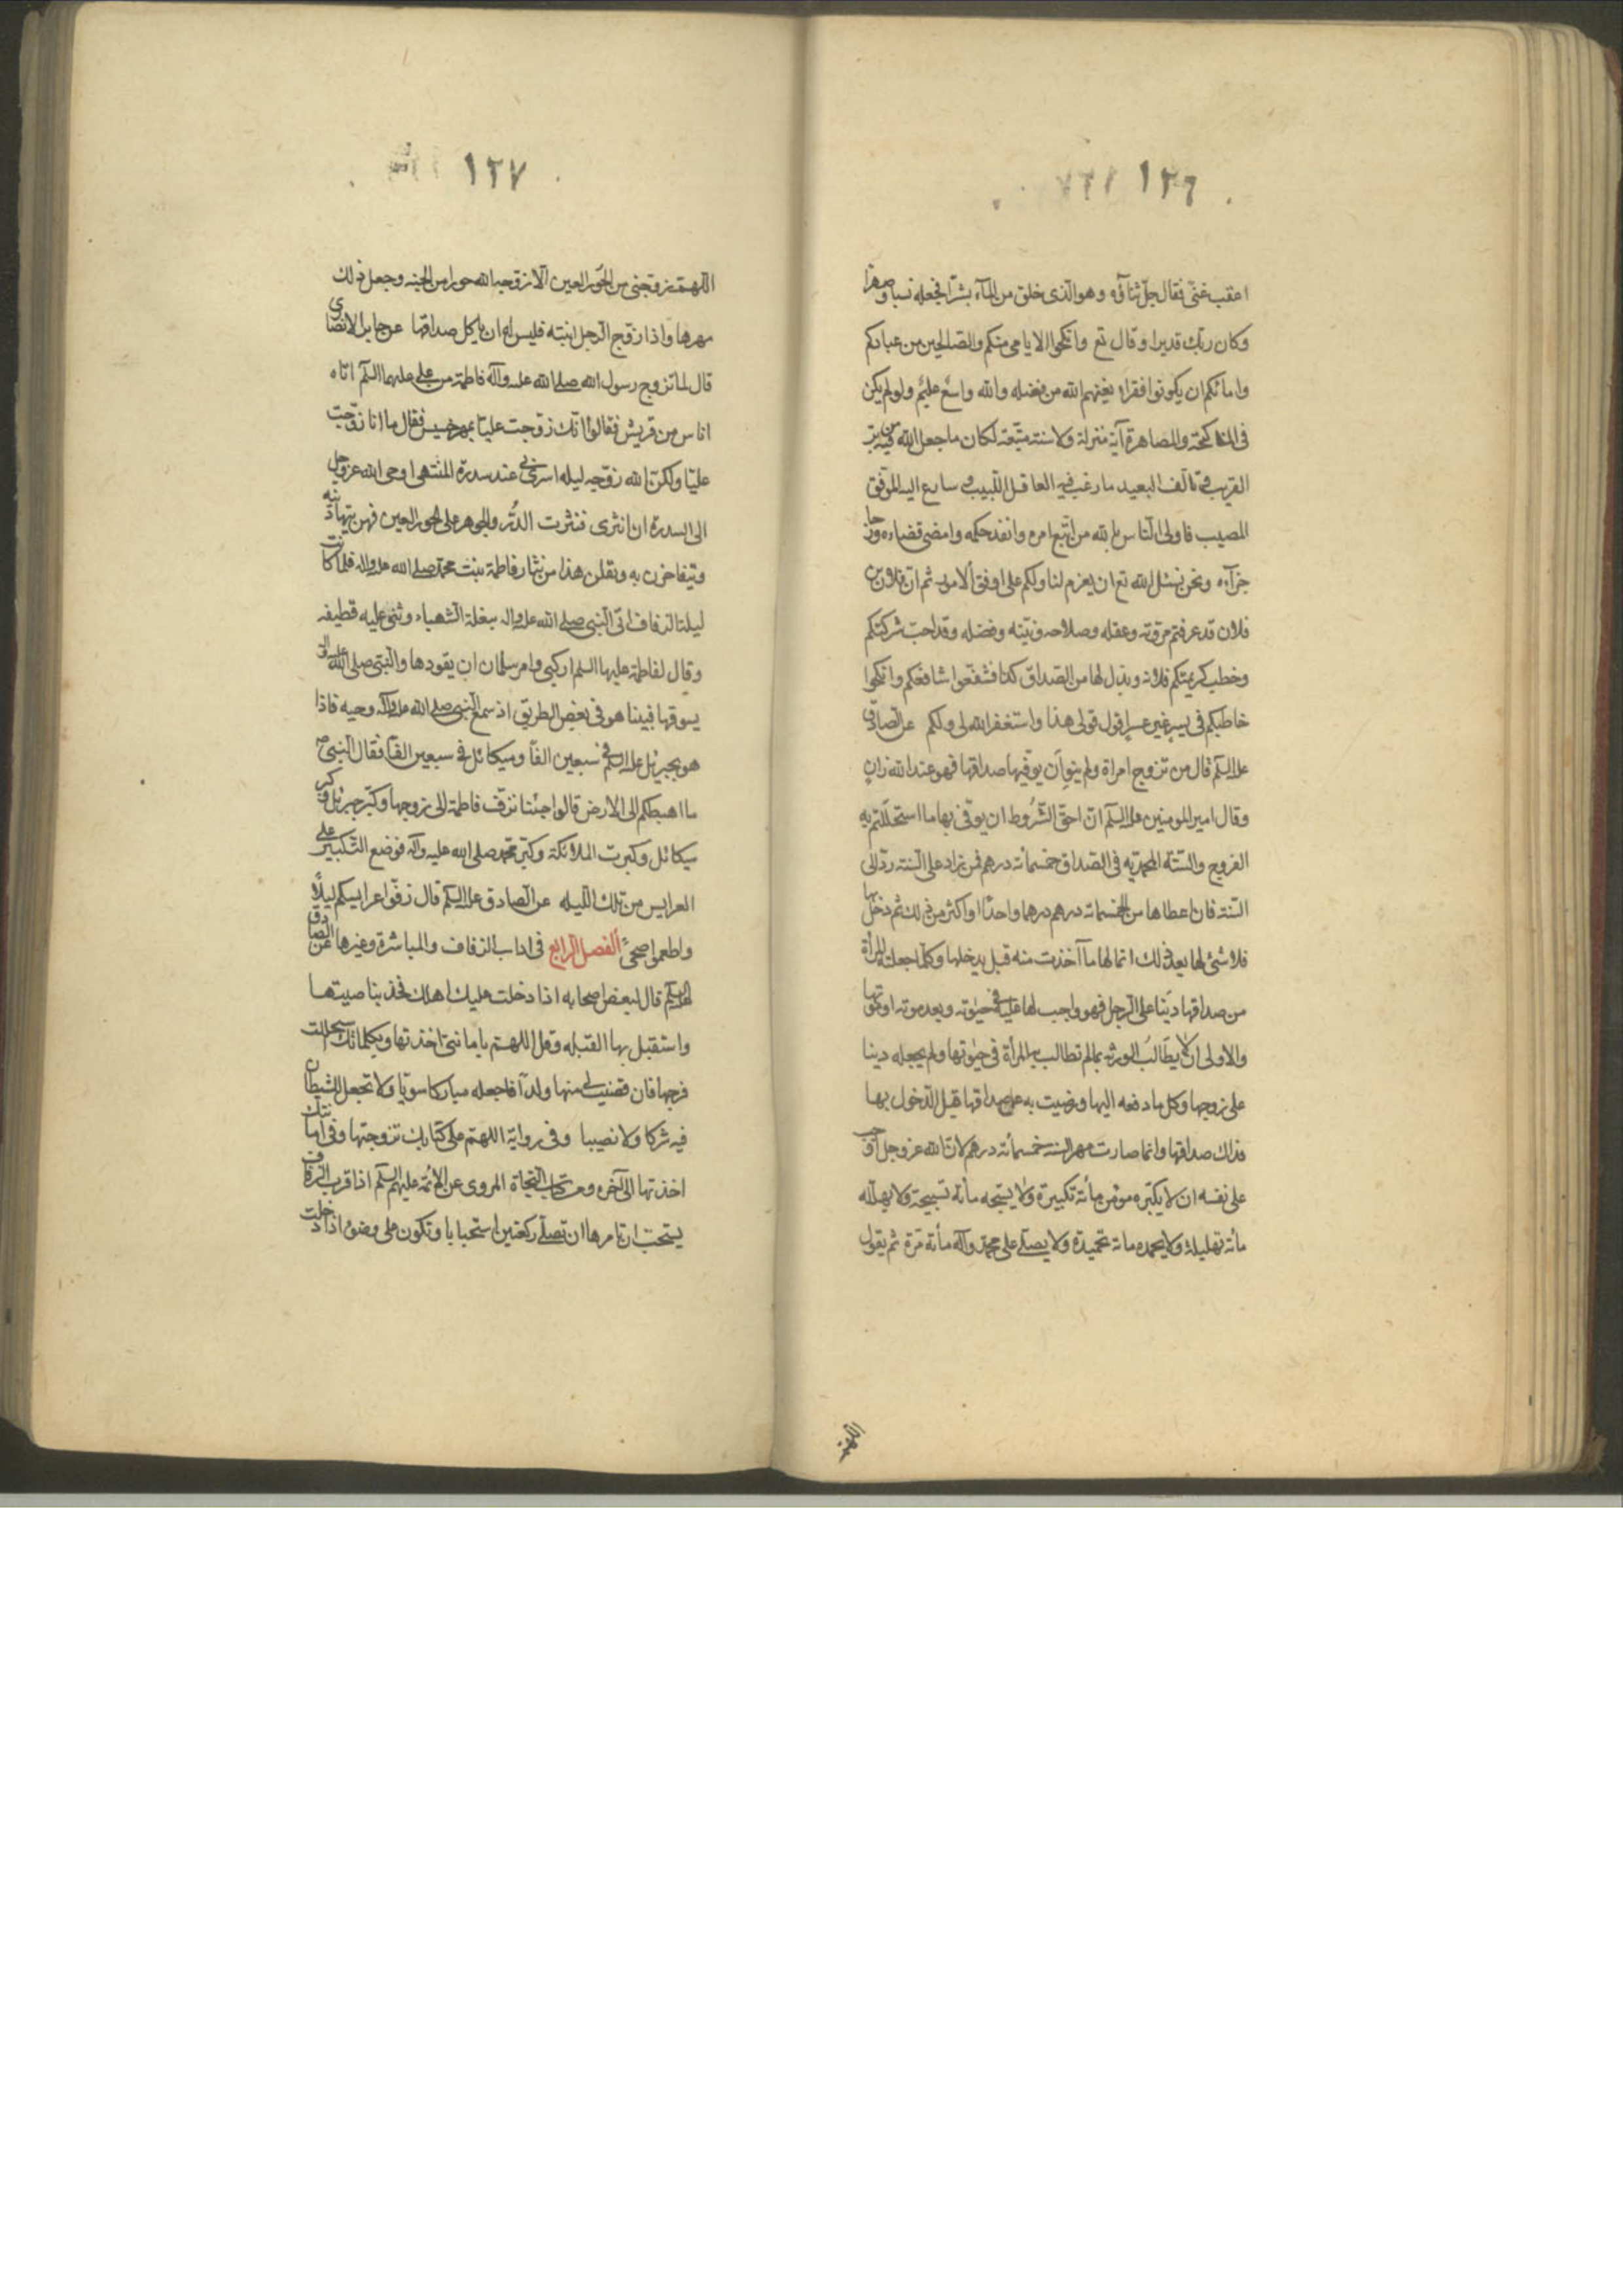 ١٢٦
اعقب غنى فقال جلّ ثناؤه وهو الّذى خلق من المآء بشرًا فجعله نسبا وصهرًا
وكان ربّك قديرا وقال تع وانكحوا الايامى منكم والصّالحين من عبادكم
وامائكم ان يكونوا فقراء يغنهم الله من فضله والله واسع عليم ولو لم يكن
فى المناكحة والمصاهرة آية منزلة ولا سنة متّبعة لكان ما جعل الله فيه من برّ
القريب وتالّف البعيد ما رغب فيه العاقل اللّبيب وسارع اليه الموفّق
المصيب فاولى النّاس بالله من اتّبع امره وانفذ حكمه وامضى قضاءه ورجا
جزآءه ونحن نسئل الله تع ان يعزم لنا ولكم على اوفق الامور ثم انّ فلان بن
فلان قد عرفتم مروّته وعقله وصلاحه ونيّته وفضله وقد احبّ شركتكم
وخطب كريمتكم فلانة وبذل لها من الصّداق كذا فشفّعوا شافعكم وانكحوا
خاطبكم فى يسر غير عسر اقول قولى هذا واستغفر الله لى ولكم عن الصّادق
عليه السّلم قال من تزوج امراة ولم ينو ان يوفيها صداقها فهو عند الله زان
وقال امير المومنين عليه السّلم انّ احقّ الشّروط ان يوفى بها ما استحللتم به
الفروج والسّنّة المحمدّيه فى الصّداق خمسمائة درهم فمن زاد على السّنة ردّ الى
السّنة فان اعطاها من الخمسمائة درهم درهما واحدًا او اكثر من ذلك ثم دخل بها
فلا شئ لها بعد ذلك انما لها ما آخذت منه قبل يدخلها وكلّما جعلته المرأة
من صداقها دينا على الرّجل فهو واجب لها عليه فى حيوته وبعد موته او موتها
والاولى ان لا يطالب الورثة بما لم تطالب به المرأة فى حيوتها ولم يجعله دينا
على زوجها وكل ما دفعه اليها ورضيت به عن صداقها قبل الدّخول بها
فذلك صداقها وانما صارت مهر السنة خمسمائة درهم لانّ الله عز وجل اوجب
على نفسه ان لا يكبّره مومن مائة تكبيرة ولا يسبّحه مائة تسبيحة ولا يهلّله
مائة تهليلة ولا يحمده مائة تحميدة ولا يصلّى على محمّد وآله مائة مرّة ثم يقول
١٢٧
اللّهمّ زوّجنى من الحور العين الّا زوّجه الله حورا من الجنة وجعل ذلك
مهرها واذا زوّج الرّجل ابنته فليس له ان ياكل صداقها عن جابر الانصارى
قال لما تزوج رسول الله صلى الله عليه وآله فاطمة من على عليهما السّلم اتاه
اناس من قريش فقالوا انّك زوّجت عليّا بمهر خسيس فقال ما انا زوّجت
عليّا ولكنّ الله زوّجه ليله اسرى بى عند سدرة المنتهى اوحى الله عزوجل
الى السدرة ان انثرى فنثرت الدّرّ والجوهر على الحور العين فهن يتهادينه
ويتفاخرن به ويقلن هذا من نثار فاطمة بنت محمّد صلى الله عليه واله فلما كانت
ليلة الزفاف اتى النّبى صلى الله عليه واله ببغلة الشهباء وثنى عليه قطيفه
وقال لفاطمة عليها السلم اركبى وامر سلمان ان يقودها والنّبىّ صلى الله عليه واله
يسوقها فبينا هو فى بعض الطريق اذ سمع النّبى صلى الله عليه وآله وجبه فاذا
هو بجبرئل عليه السّلم فى سبعين الفًا وميكائل فى سبعين الفًا فقال النّبىّ ص
ما اهبطكم الى الارض قالوا جئنا نزفّ فاطمة الى زوجها وكبّر جبرئل وكبر
ميكائل وكبرت الملائكة وكبّر محمّد صلى الله عليه وآله فوضع التّكبير على
العرايس من تلك اللّيله عن الصادق عليه السّلم قال زفّوا عرايسكم ليلًا
واطعموا ضحىً الفصل الرّابع فى اداب الزفاف والمباشرة وغيرها عن الصّادق
عليه السّلم قال لبعض اصحابه اذا دخلت عليك اهلك فخذ بناصيتها
واستقبل بها القبله وقل اللهم بامانتى اخذتها وبكلماتك استحللت
فرجها فان قضيت لى منها ولدًا فاجعله مباركا سويّا ولا تجعل للشيطان
فيه شركا ولا نصيبا وفى رواية اللهم على كتابك تزوجتها وفى امانتك
اخذتها الى آخره ومن كتاب النّجاة المروى عن الائمّة عليهم السّلم اذا قرب الزّفاف
يستحبّ ان تامرها ان تصلّى ركعتين استحبابا وتكون على وضوء اذا دخلت